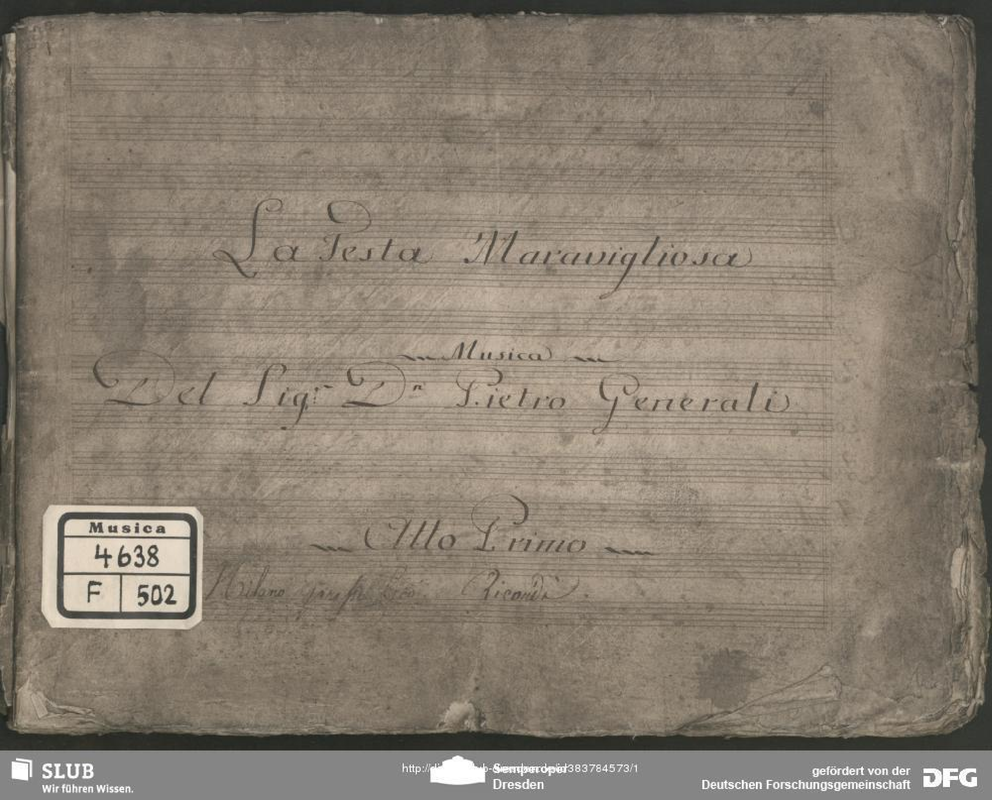 La Testa Maravigliosa
Musica
Del Sig.r D.n Pietro Generali
Atto Primo
Milano Ricordi
Musica
4638
F 502
SLUB
Wir führen Wissen.
Semperoper
Dresden
gefördert von der
Deutschen Forschungsgemeinschaft
DFG